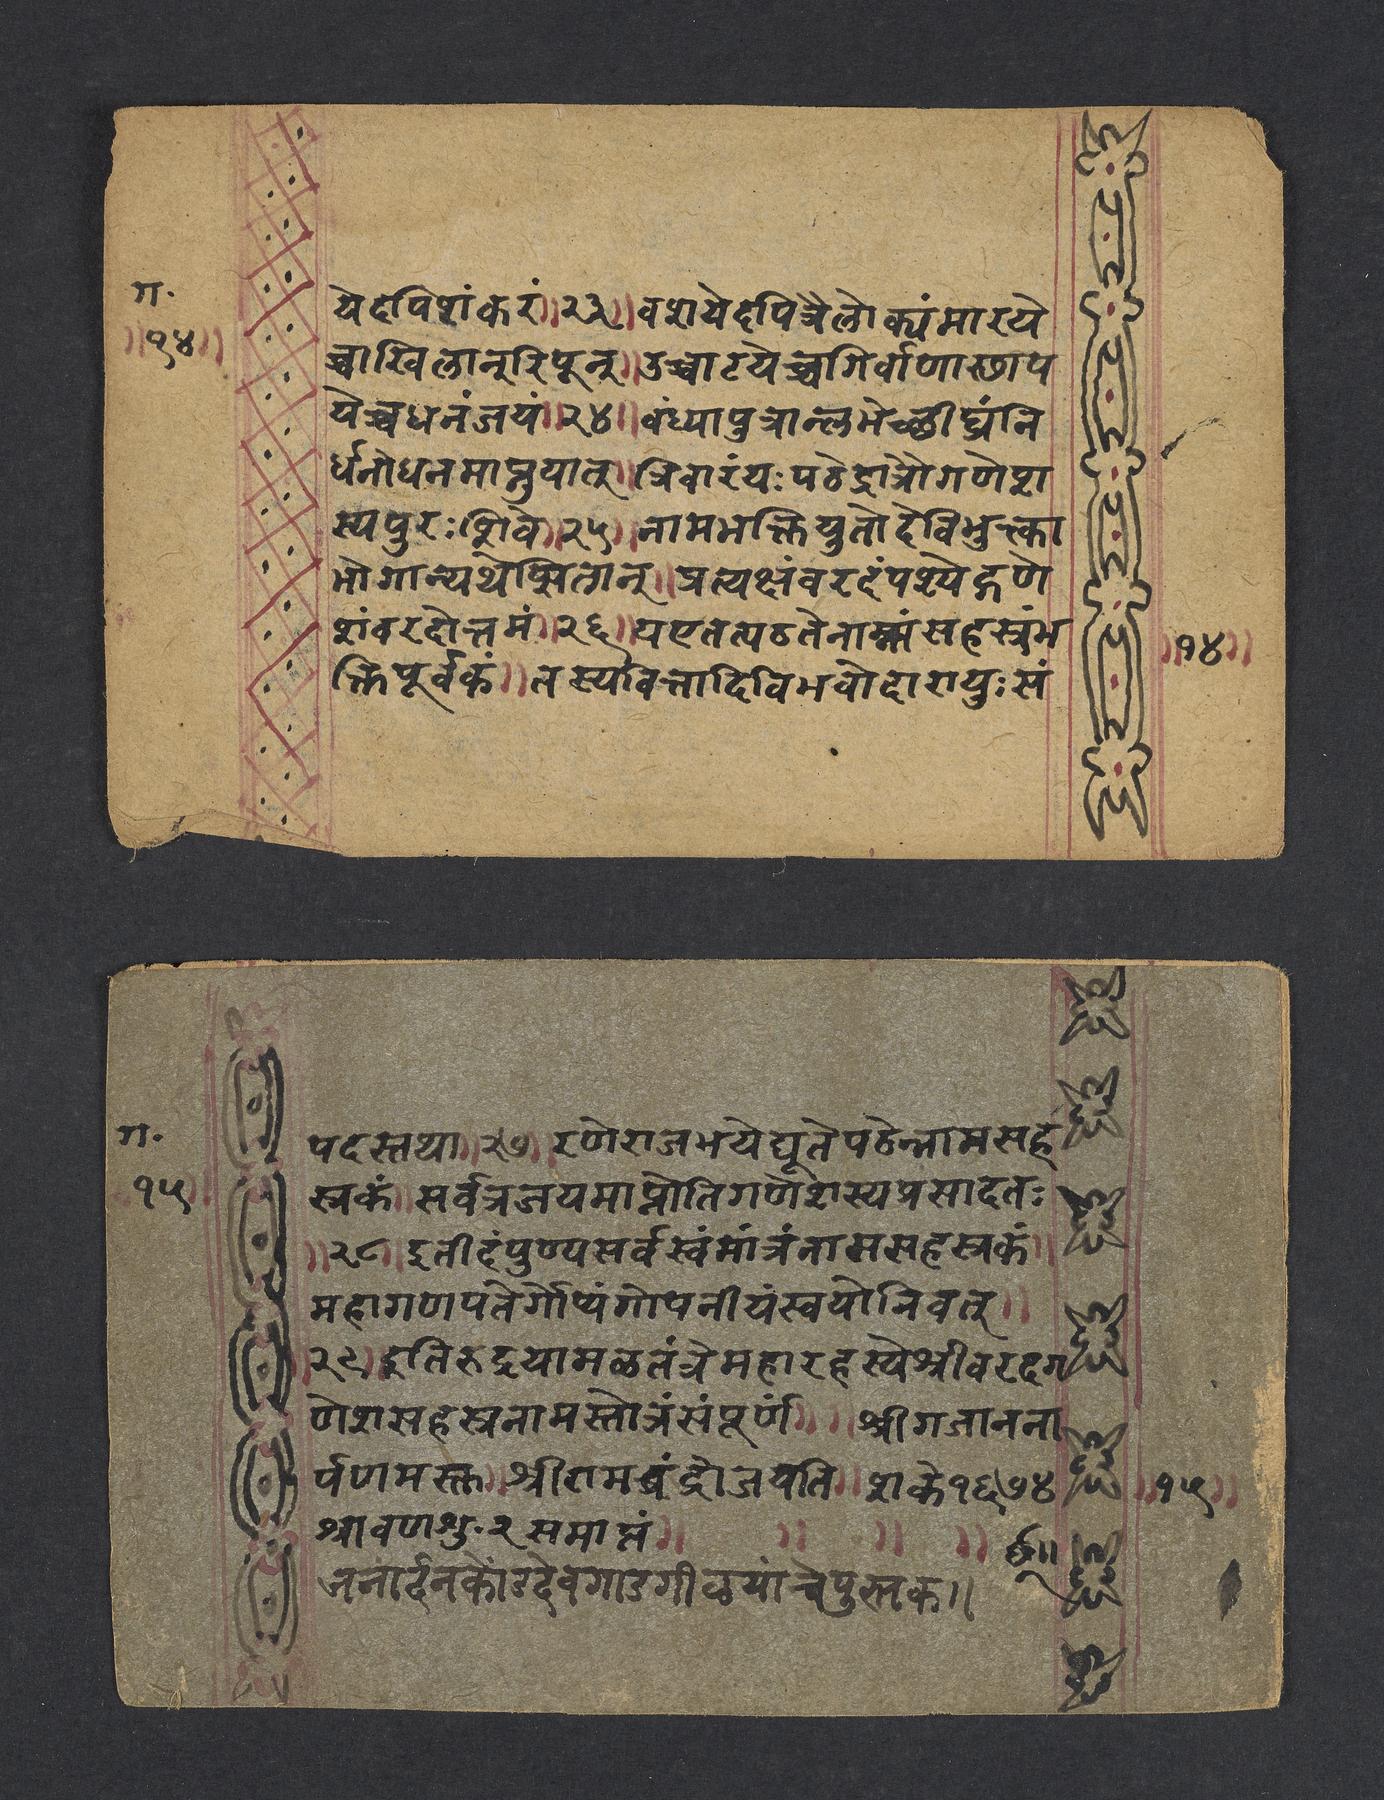 ग.
॥१४॥
येदपिशंकरं॥२३॥वशयेदपित्रैलोक्यंमारये
च्चाखिलान्‌रिपून्‌॥उच्चाटयेच्चगिर्वाणास्छाप
येच्चधनंजयं॥२४॥वंध्यापुत्रान्लभेच्छीघ्रंनि
र्धनोधनमाप्नुयात्‌॥त्रिवारंयःपठेद्रात्रौगणेश
स्यपुरःशिवे॥२५॥नामभक्तियुतोदेविभुक्त्का
भोगान्यथेप्सितान्‌॥प्रत्यक्षंवरदंपश्येद्गणे
शंवरदोत्तमं॥२६॥यएतत्पठतेनाम्नांसहस्त्रंभ
क्तिपूर्वकं॥तस्यवित्तादिविभवोदारायुःसं
॥१४॥
ग.
१५
पदस्तथा॥२७॥रणेराजभयेद्यूतेपठेन्नामसह
स्त्रकं॥सर्वत्रजयमाप्नोतिगणेशस्यप्रसादतः
॥२८॥इतीदंपुण्यसर्वस्वंमांत्रंनामसहस्त्रकं॥
महागणपतेर्गोप्यंगोपनीयंस्वयोनिवत्‌॥
॥२९॥इतिरुद्रयामळतंत्रेमहारहस्येश्रीवरदग
णेशसहस्त्रनामस्तोत्रंसंपूर्णं॥ ॥श्रीगजानना
र्पणमस्तु॥श्रीरामचंद्रोजयति॥शके१६७४
श्रावणशु.२समाप्तं॥ ॥ ॥ ॥ छ॥
जनार्दनकोंडदेवगाडगीळयांचेपुस्तक॥
॥१५॥